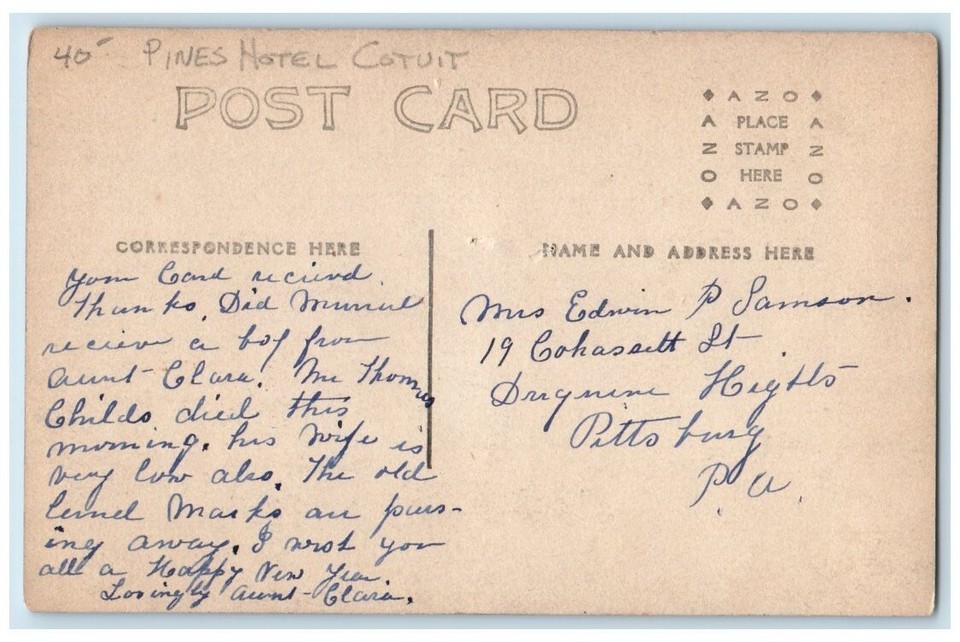 40 PINES HOTEL COTUIT
POST CARD
◆ A Z O ◆
A PLACE A
Z STAMP Z
O HERE O
◆ A Z O ◆
CORRESPONDENCE HERE
your Card recieved.
Thanks, Did Muriel
recieve a box from
Aunt Clara. Mr Thomas
Childs died this
morning. his wife is
very low also. The old
Lend Marks are pass-
ing away. I wish you
all a Happy New Year.
Lovingly Aunt Clara.
NAME AND ADDRESS HERE
Mrs Edwin P Samson.
19 Cohassett St
Duquesne Hights
Pittsburg
Pa.